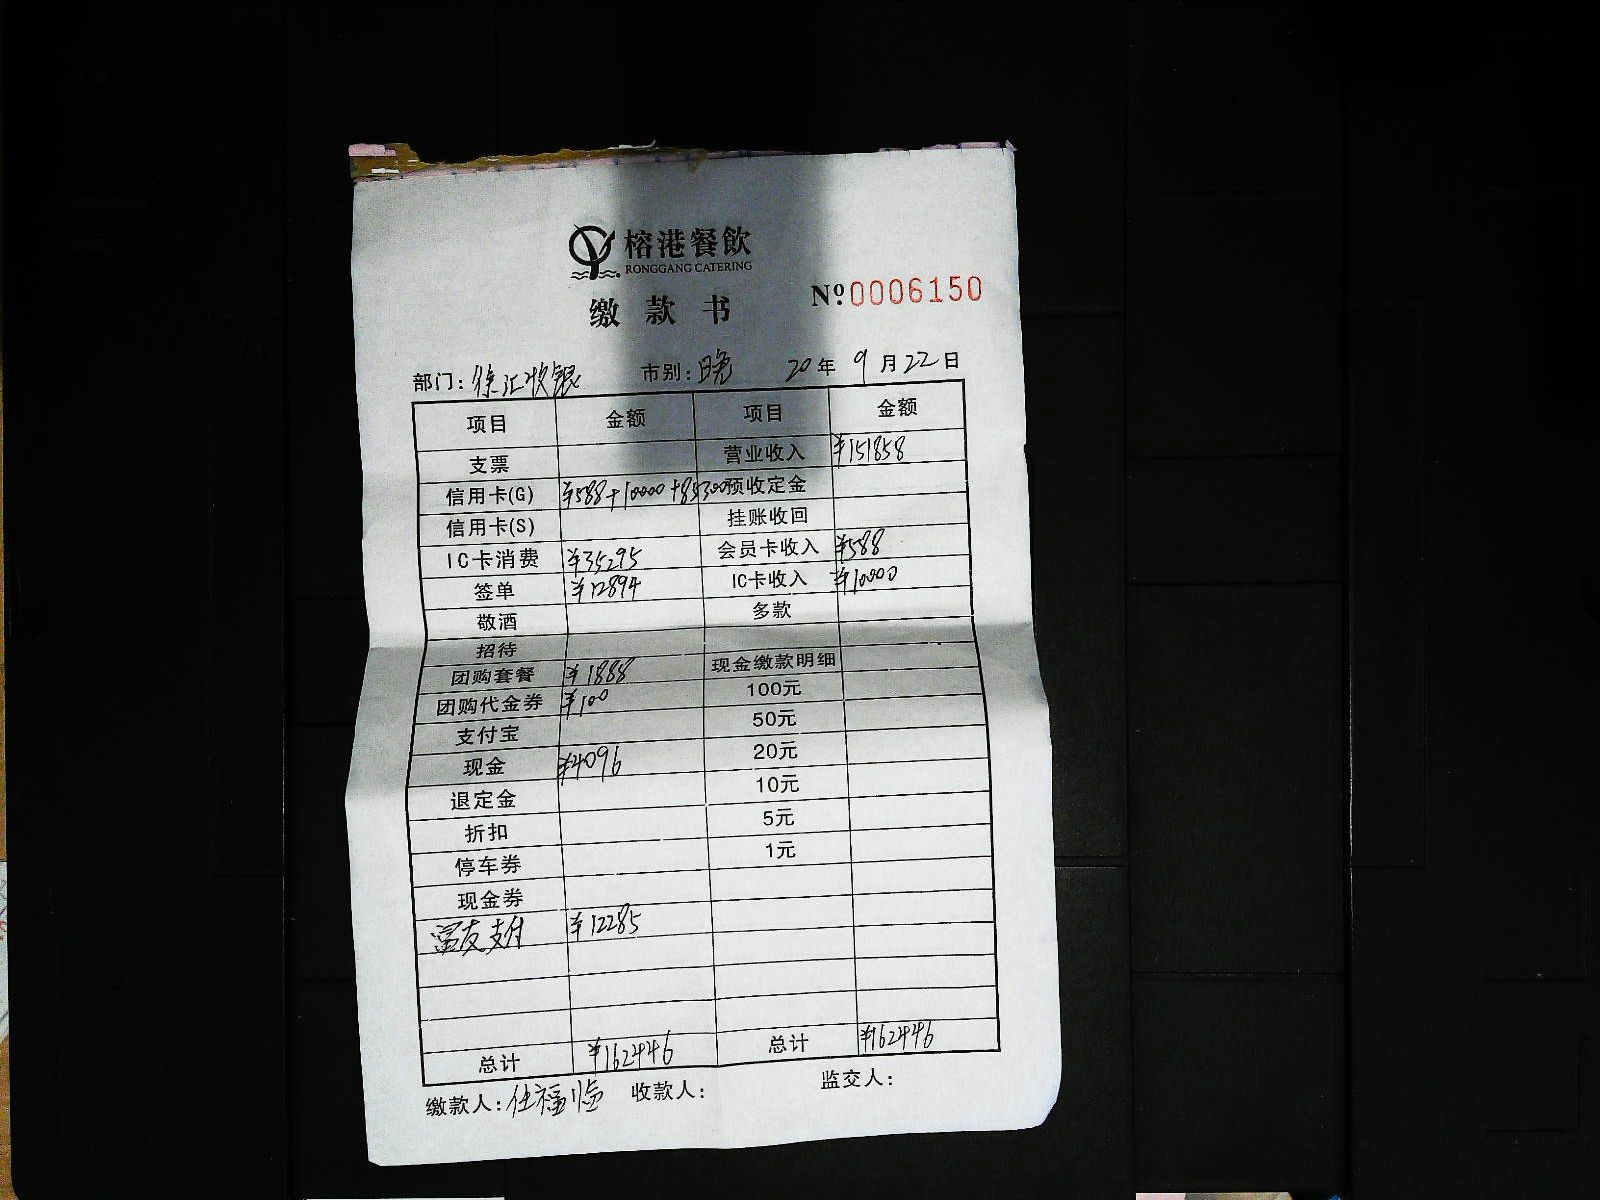 榕港餐飲
RONGGANG CATERING
缴款书 Nº0006150
部门:徐汇收银 市别:晚 20年9月22日
项目 金额 项目 金额
支票 营业收入 ¥151858
信用卡(G) ¥588+10000+85300 预收定金
信用卡(S) 挂账收回
IC卡消费 ¥35295 会员卡收入 ¥588
签单 ¥12894 IC卡收入 ¥10000
敬酒 多款
招待
团购套餐 ¥1888 现金缴款明细
团购代金券 ¥100 100元
支付宝 50元
现金 ¥4096 20元
退定金 10元
折扣 5元
停车券 1元
现金券
富友支付 ¥12285
总计 ¥162446 总计 ¥162446
缴款人:任福临 收款人: 监交人: